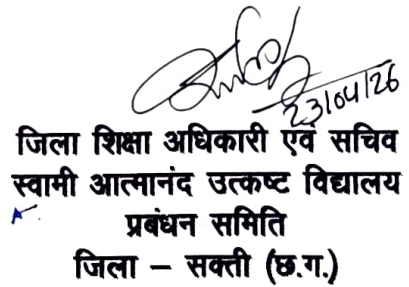 23/04/26
जिला शिक्षा अधिकारी एवं सचिव
स्वामी आत्मानंद उत्कष्ट विद्यालय
प्रबंधन समिति
जिला – सक्ती (छ.ग.)